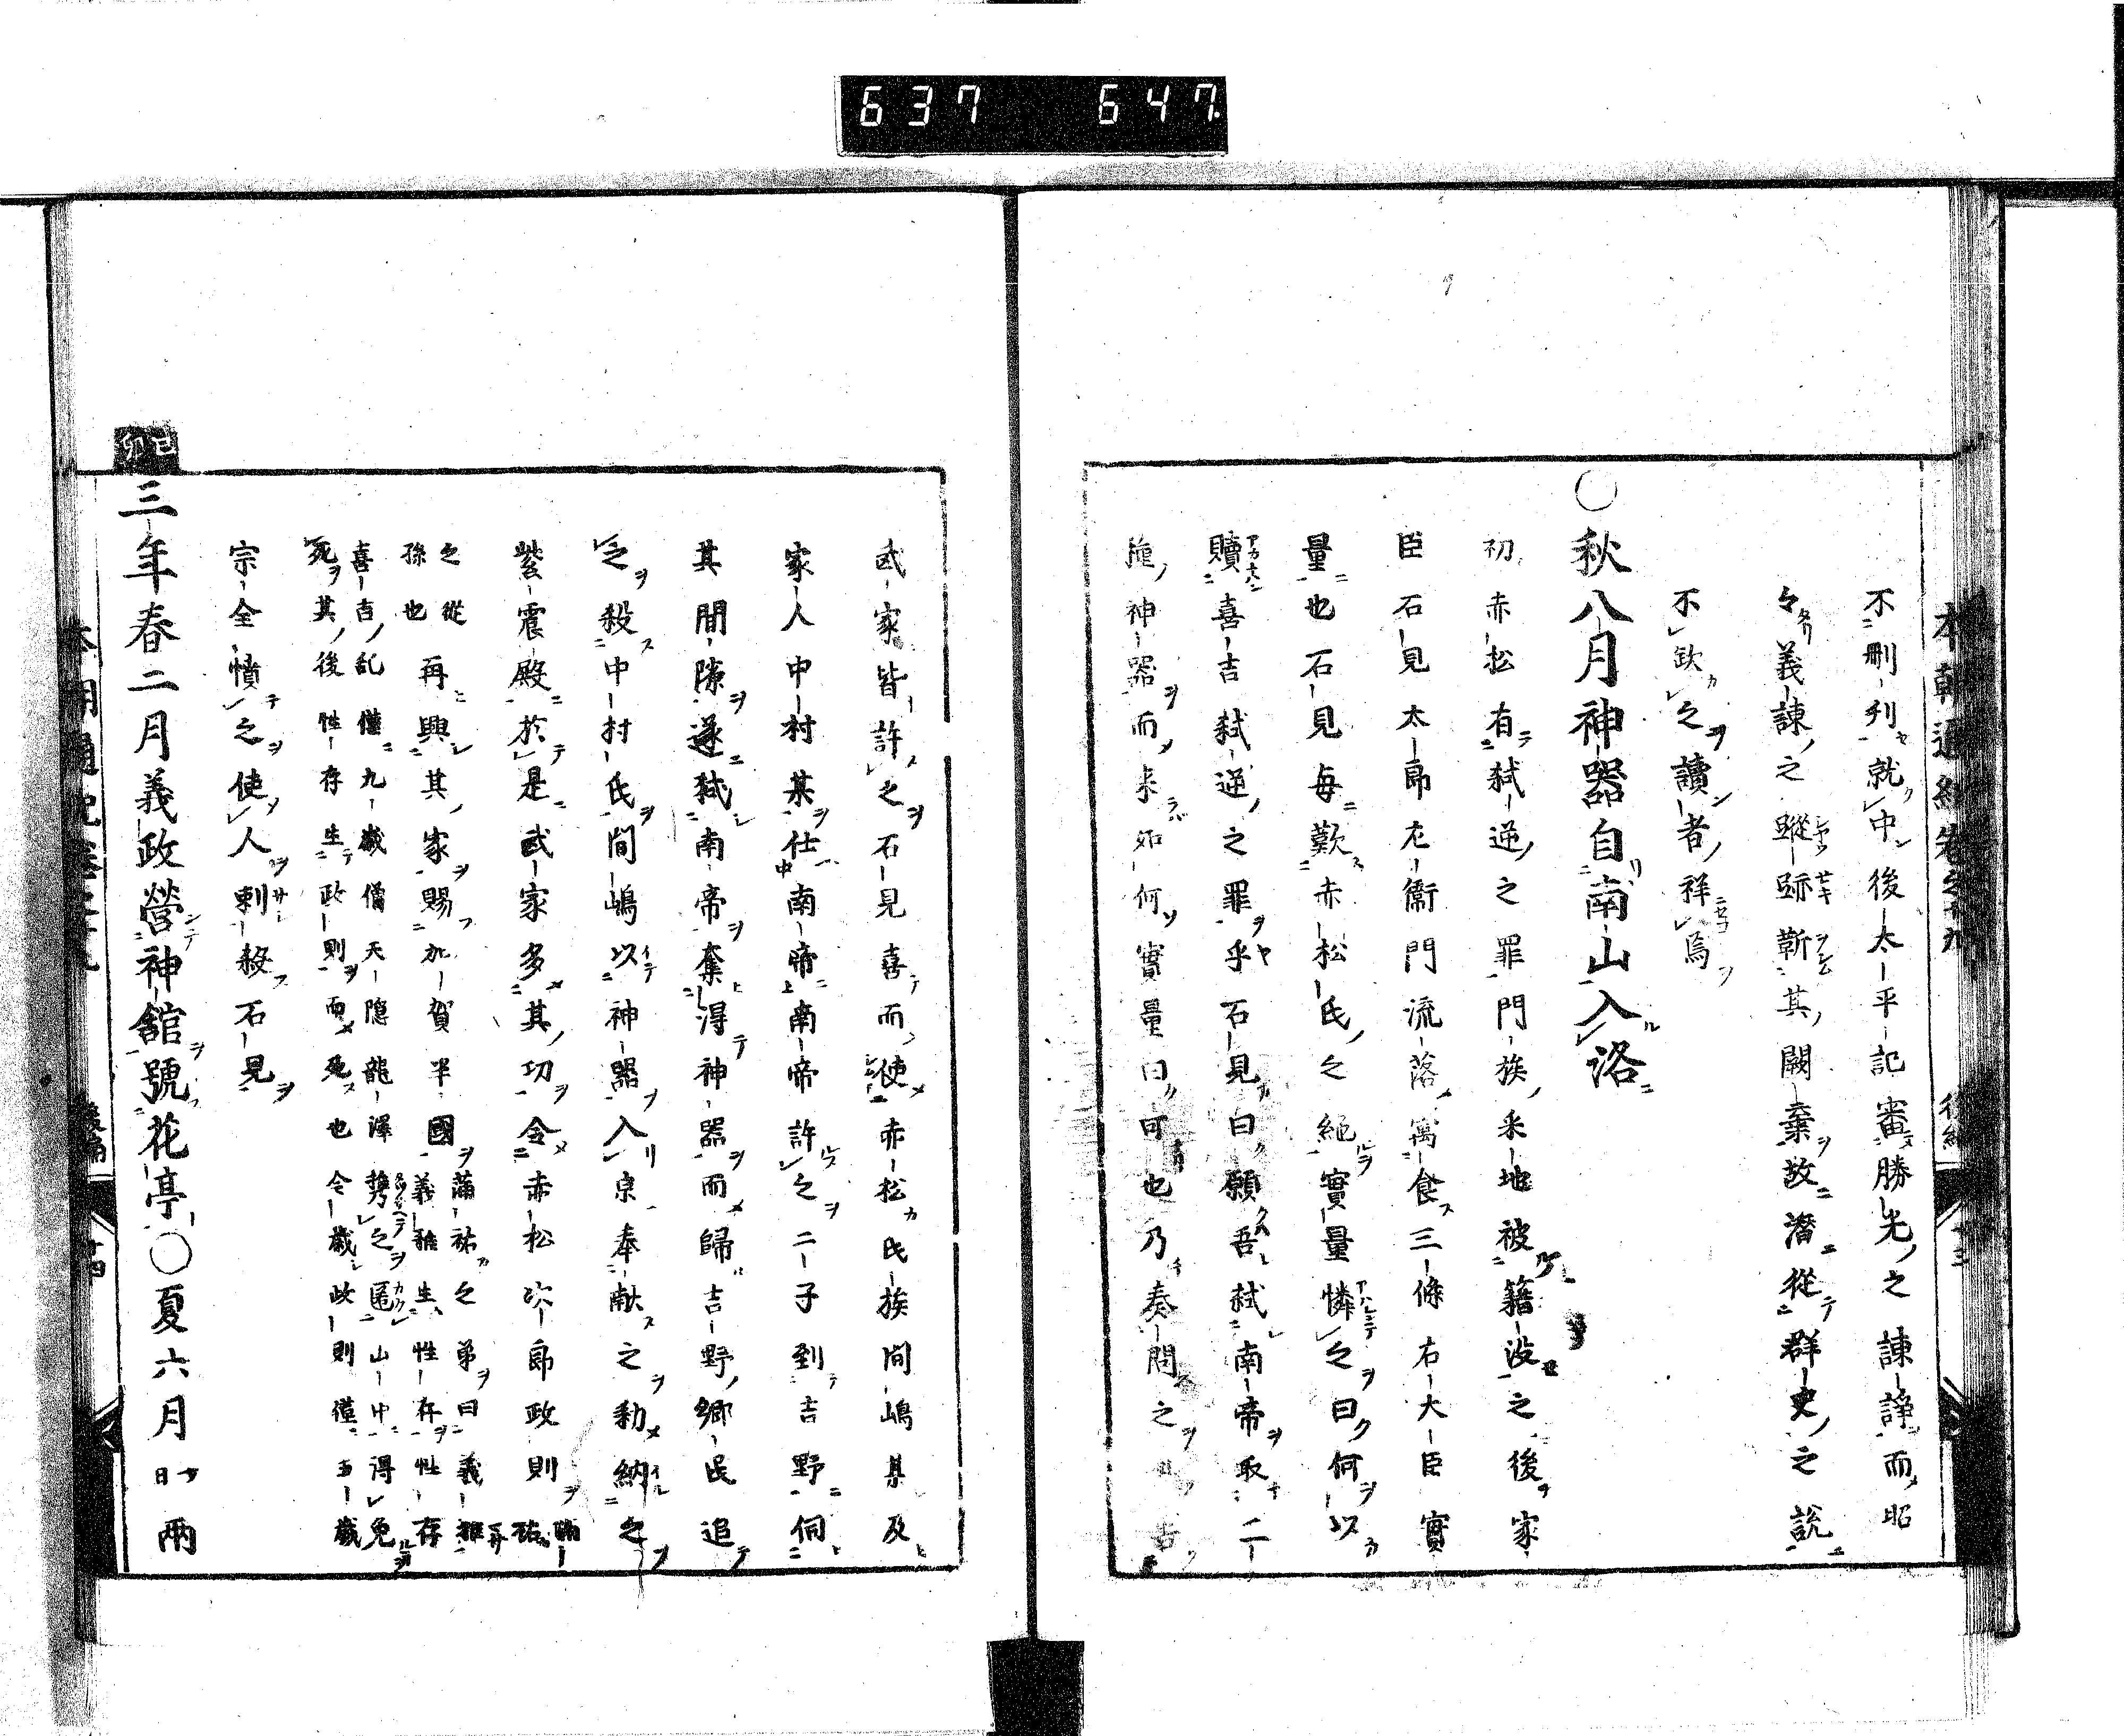 637 647
不刪刋就中後太平記審勝光之諫諍而昭
々義諫之蹤跡蘄其闕棄故潛從群史之説
不欽之讀者祥焉
○秋八月神器自南山入洛
初赤松有弑逆之罪門族釆地被籍没之後家
臣石見太郎左衞門流落寓食三條右大臣實
量也石見毎歎赤松氏之絶實量憐之曰何以
贖喜吉弑逆之罪乎石見曰願吾弑南帝取二
神器而来如何實量曰可也乃奏問之
武家皆許之石見喜而使赤松氏族間嶋某及
家人中村某仕南帝南帝許之二子到吉野伺
其間隙遂弑南帝奪得神器而歸吉野郷民追
之殺中村氏間嶋以神器入京奉献之勅納之
紫震殿於是武家多其功令赤松次郎政則
之從孫也再興其家賜加賀半國滿祐之弟曰義雅義雅生性存性存
喜吉乱僅九歳僧天隠龍澤携之匿山中得免
死其後性存生政則而死也今歳政則僅五歳
宗全憤之使人刺殺石見
己卯
三年春二月義政營神舘號花亭○夏六月朔日兩
本朝通紀卷之十九 後編 十三
後編 十四